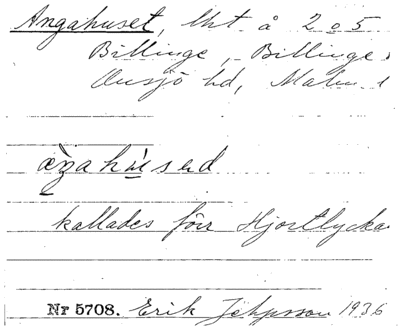 Angahuset, lht å 2 o 5
Billinge, Billinge
Onsjö hd, Malm
aŋahu̇səd
kallades förr Hjortlycka
Nr 5708. Erik Jeppsson 1936